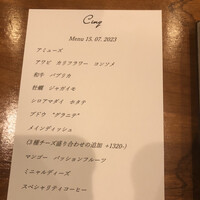 Cinq
Menu 15. 07. 2023
アミューズ
アワビ カリフラワー コンソメ
和牛 パプリカ
牡蠣 ジャガイモ
シロアマダイ ホタテ
ブドウ "グラニテ"
メインディッシュ
(3種チーズ盛り合わせの追加 +1320-)
マンゴー パッションフルーツ
ミニャルディーズ
スペシャリティコーヒー